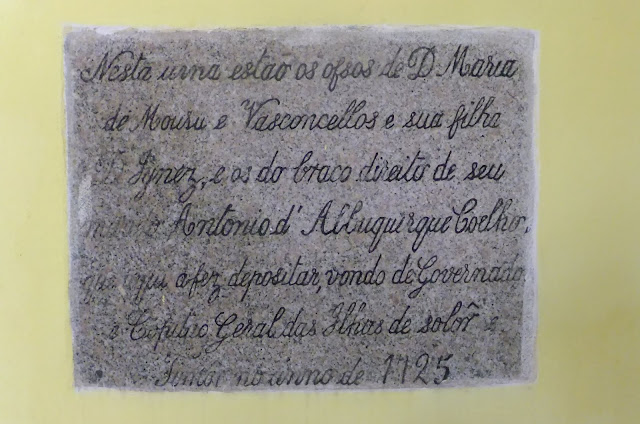 Nesta urna estaõ os ofsos de D. Maria
de Moura e Vasconcellos e sua filha
D. Ignez, e os do braco direito de seu
marido Antonio d' Albuquerque Coelho,
que aqui a fez depositar, vondo de Governador
e Capitão Geral das Ilhas de solor e
Timor no anno de 1725